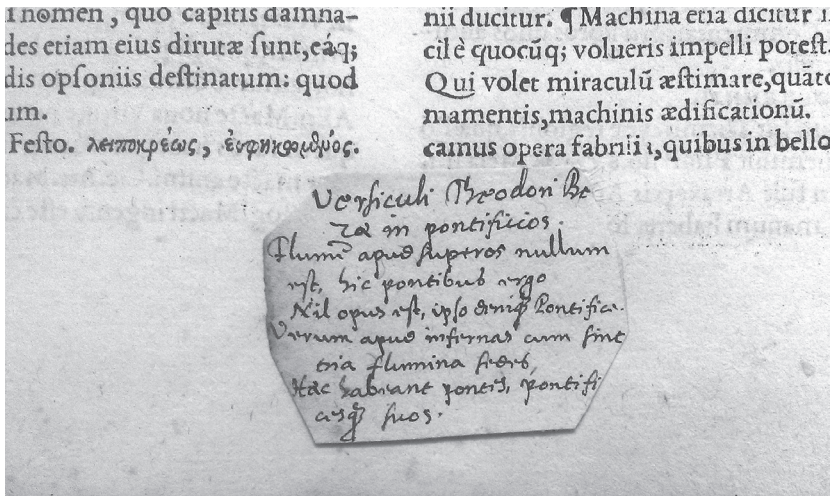 I nomen, quo capitis damna-
des etiam eius dirutæ ſunt, eáq;
dis opſoniis deſtinatum: quod
um.
Feſto. λειποκρέως,
nii ducitur. ¶Machina etiā dicitur
cilè quocūq; volueris impelli poteſt.
Qui volet miraculū æſtimare, quāto
mamentis, machinis ædificationū.
camus opera fabrili, quibus in bello
Verſiculi Theodori Be
zæ in pontificios.
Flumē apud ſuperos nullum
eſt, hic pontibus ergo
Nil opus eſt, ipſo deniq; Pontifice.
Verum apud infernas cum ſint
tria flumina ſedes,
Hæc habeant pontes, pontifi
cesq; ſuos.